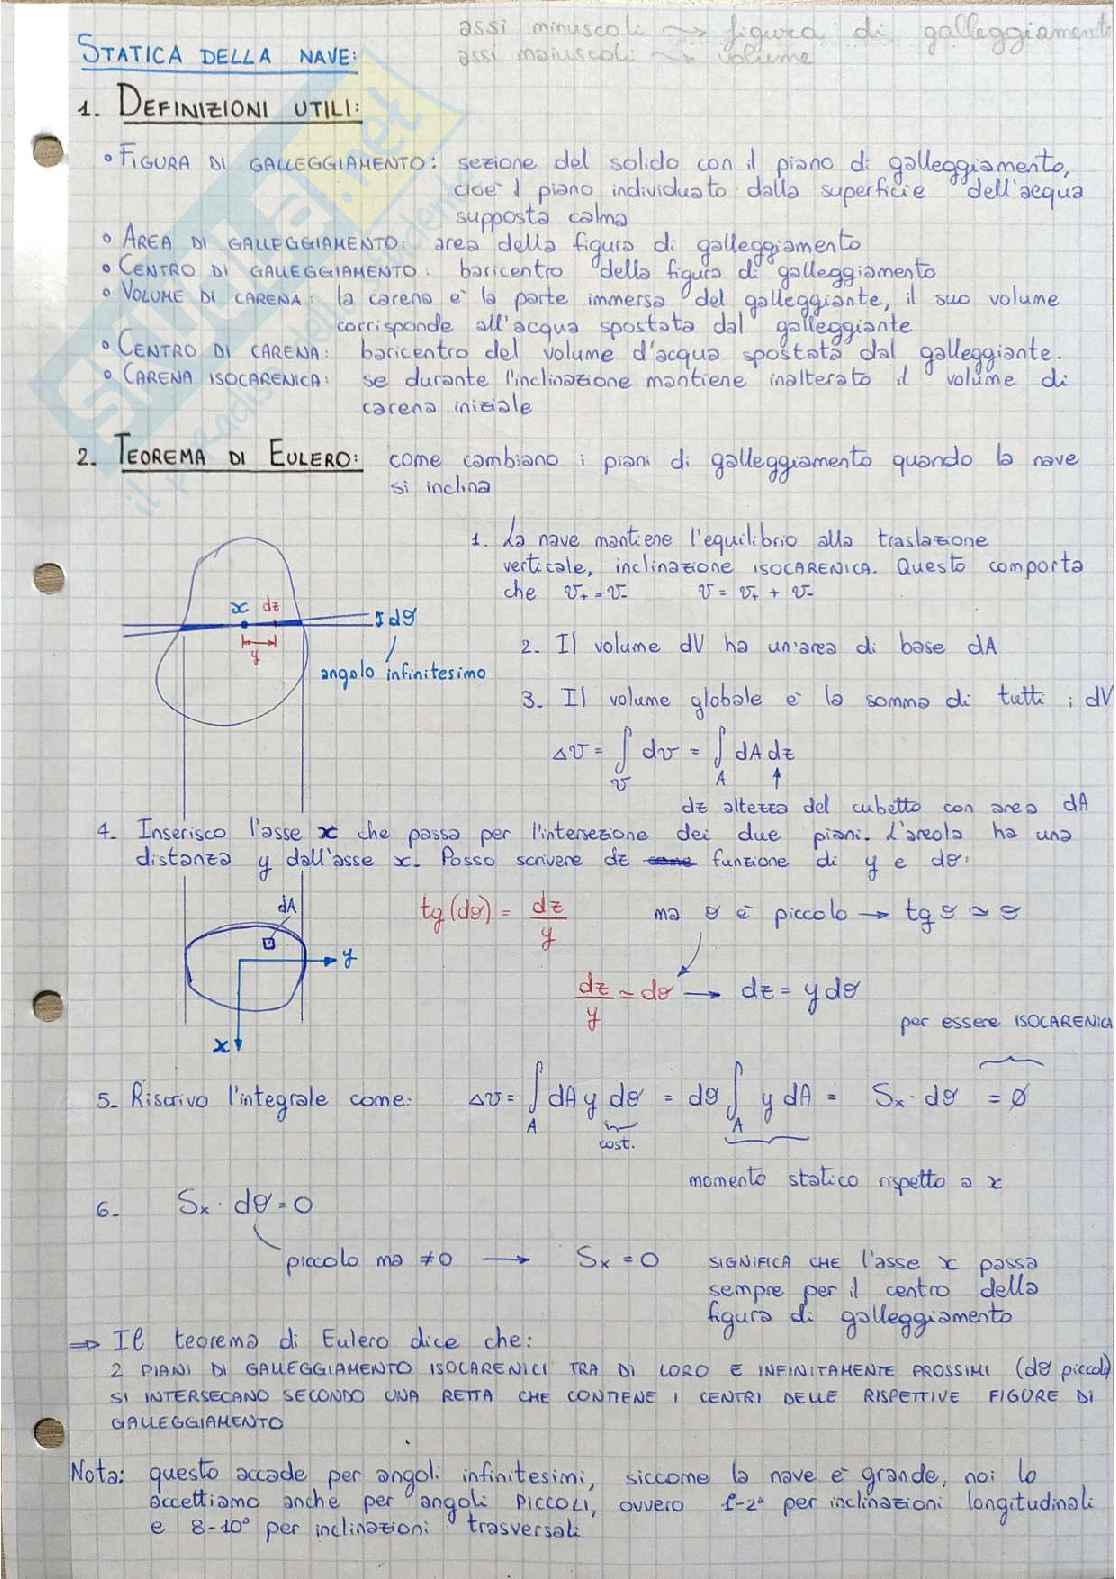 assi minuscoli ⇝ figura di galleggiamento
assi maiuscoli ⇝ volume
STATICA DELLA NAVE:
1. DEFINIZIONI UTILI:
• FIGURA DI GALLEGGIAMENTO: sezione del solido con il piano di galleggiamento,
cioè il piano individuato dalla superficie dell'acqua
supposta calma
• AREA DI GALLEGGIAMENTO: area della figura di galleggiamento
• CENTRO DI GALLEGGIAMENTO: baricentro della figura di galleggiamento
• VOLUME DI CARENA: la carena è la parte immersa del galleggiante, il suo volume
corrisponde all'acqua spostata dal galleggiante
• CENTRO DI CARENA: baricentro del volume d'acqua spostata dal galleggiante.
• CARENA ISOCARENICA: se durante l'inclinazione mantiene inalterato il volume di
carena iniziale
2. TEOREMA DI EULERO: come cambiano i piani di galleggiamento quando la nave
si inclina
1. La nave mantiene l'equilibrio alla traslazione
verticale, inclinazione ISOCARENICA. Questo comporta
che v₊ = v₋ v = v₊ + v₋
x dz
y
dϑ
angolo infinitesimo
2. Il volume dV ha un'area di base dA
3. Il volume globale è la somma di tutti i dV
Δv = ∫_v dv = ∫_A dA dz
dz altezza del cubetto con area dA
4. Inserisco l'asse x che passa per l'intersezione dei due piani. L'areola ha una
distanza y dall'asse x. Posso scrivere dz come funzione di y e dϑ:
dA
y
x
tg(dϑ) = dz/y ma ϑ è piccolo → tg ϑ ≃ ϑ
dz/y ≃ dϑ → dz = y dϑ
per essere ISOCARENICA
5. Riscrivo l'integrale come: Δv = ∫_A dA y dϑ = dϑ ∫_A y dA = Sx · dϑ = ∅
cost.
momento statico rispetto a x
6. Sx · dϑ = 0
piccolo ma ≠ 0 → Sx = 0 SIGNIFICA CHE l'asse x passa
sempre per il centro della
figura di galleggiamento
⇒ Il teorema di Eulero dice che:
2 PIANI DI GALLEGGIAMENTO ISOCARENICI TRA DI LORO E INFINITAMENTE PROSSIMI (dϑ piccoli)
SI INTERSECANO SECONDO UNA RETTA CHE CONTIENE I CENTRI DELLE RISPETTIVE FIGURE DI
GALLEGGIAMENTO
Nota: questo accade per angoli infinitesimi, siccome la nave è grande, noi lo
accettiamo anche per angoli PICCOLI, ovvero 1-2° per inclinazioni longitudinali
e 8-10° per inclinazioni trasversali